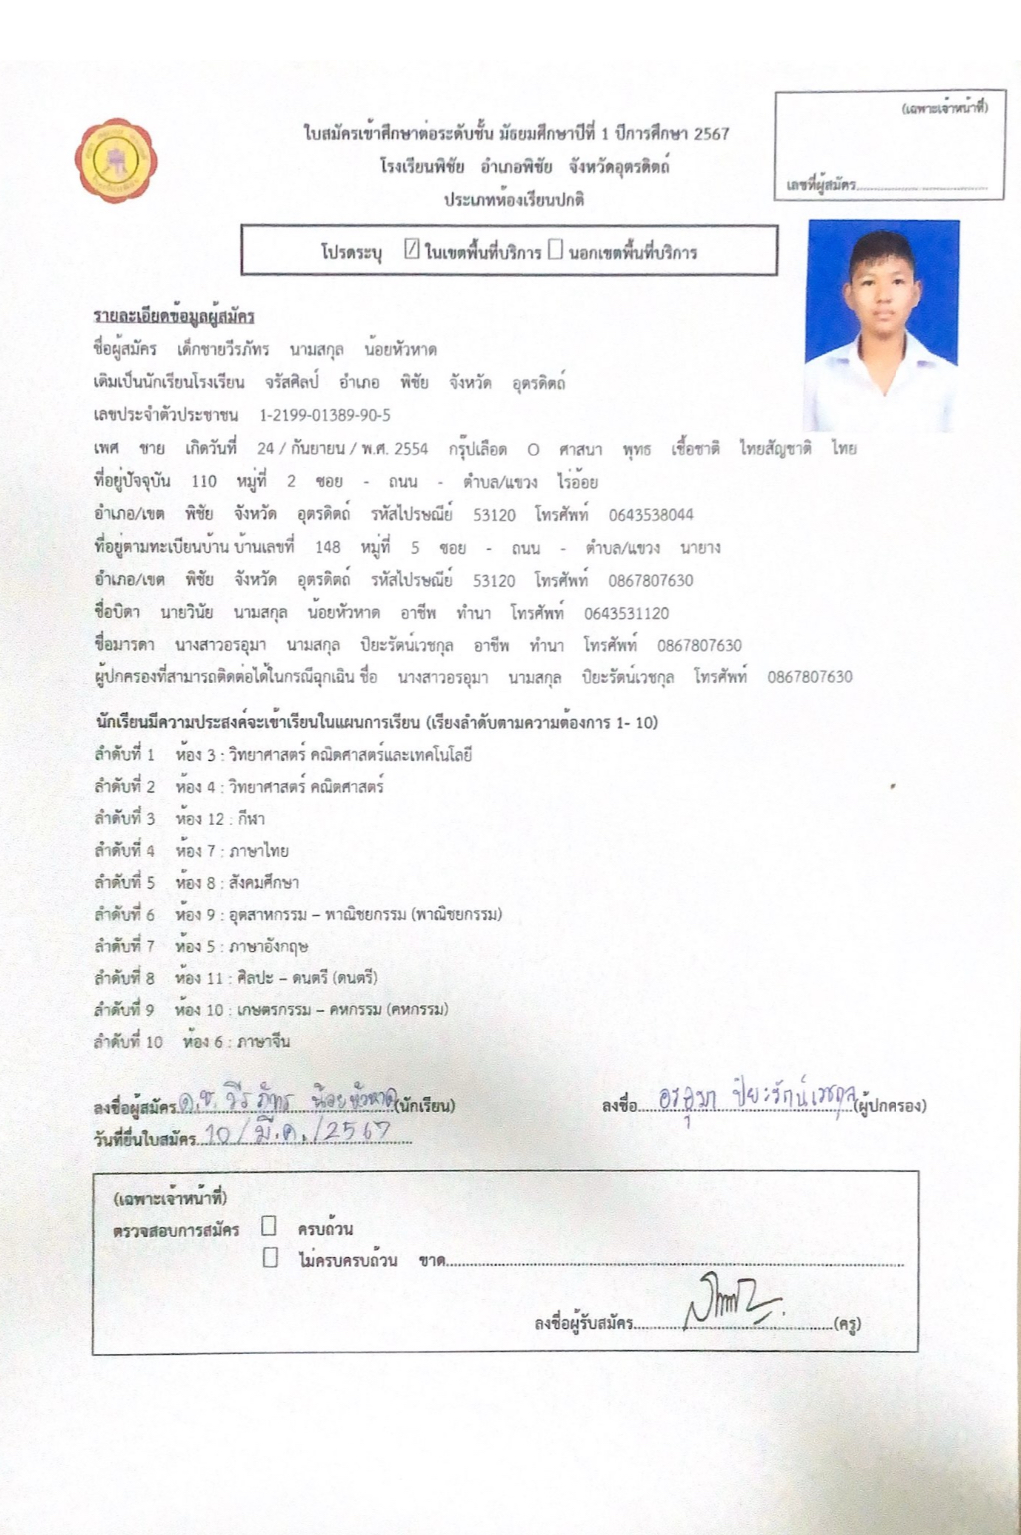 (เฉพาะเจ้าหน้าที่)
เลขที่ผู้สมัคร
ใบสมัครเข้าศึกษาต่อระดับชั้น มัธยมศึกษาปีที่ 1 ปีการศึกษา 2567
โรงเรียนพิชัย อำเภอพิชัย จังหวัดอุตรดิตถ์
ประเภทห้องเรียนปกติ
โปรดระบุ ☑ ในเขตพื้นที่บริการ ☐ นอกเขตพื้นที่บริการ
รายละเอียดข้อมูลผู้สมัคร
ชื่อผู้สมัคร เด็กชายวีรภัทร นามสกุล น้อยหัวหาด
เดิมเป็นนักเรียนโรงเรียน จรัสศิลป์ อำเภอ พิชัย จังหวัด อุตรดิตถ์
เลขประจำตัวประชาชน 1-2199-01389-90-5
เพศ ชาย เกิดวันที่ 24 / กันยายน / พ.ศ. 2554 กรุ๊ปเลือด O ศาสนา พุทธ เชื้อชาติ ไทยสัญชาติ ไทย
ที่อยู่ปัจจุบัน 110 หมู่ที่ 2 ซอย - ถนน - ตำบล/แขวง ไร่อ้อย
อำเภอ/เขต พิชัย จังหวัด อุตรดิตถ์ รหัสไปรษณีย์ 53120 โทรศัพท์ 0643538044
ที่อยู่ตามทะเบียนบ้าน บ้านเลขที่ 148 หมู่ที่ 5 ซอย - ถนน - ตำบล/แขวง นายาง
อำเภอ/เขต พิชัย จังหวัด อุตรดิตถ์ รหัสไปรษณีย์ 53120 โทรศัพท์ 0867807630
ชื่อบิดา นายวินัย นามสกุล น้อยหัวหาด อาชีพ ทำนา โทรศัพท์ 0643531120
ชื่อมารดา นางสาวอรอุมา นามสกุล ปิยะรัตน์เวชกุล อาชีพ ทำนา โทรศัพท์ 0867807630
ผู้ปกครองที่สามารถติดต่อได้ในกรณีฉุกเฉิน ชื่อ นางสาวอรอุมา นามสกุล ปิยะรัตน์เวชกุล โทรศัพท์ 0867807630
นักเรียนมีความประสงค์จะเข้าเรียนในแผนการเรียน (เรียงลำดับตามความต้องการ 1- 10)
ลำดับที่ 1 ห้อง 3 : วิทยาศาสตร์ คณิตศาสตร์และเทคโนโลยี
ลำดับที่ 2 ห้อง 4 : วิทยาศาสตร์ คณิตศาสตร์
ลำดับที่ 3 ห้อง 12 : กีฬา
ลำดับที่ 4 ห้อง 7 : ภาษาไทย
ลำดับที่ 5 ห้อง 8 : สังคมศึกษา
ลำดับที่ 6 ห้อง 9 : อุตสาหกรรม – พาณิชยกรรม (พาณิชยกรรม)
ลำดับที่ 7 ห้อง 5 : ภาษาอังกฤษ
ลำดับที่ 8 ห้อง 11 : ศิลปะ – ดนตรี (ดนตรี)
ลำดับที่ 9 ห้อง 10 : เกษตรกรรม – คหกรรม (คหกรรม)
ลำดับที่ 10 ห้อง 6 : ภาษาจีน
ลงชื่อผู้สมัคร ด.ช. วีรภัทร น้อยหัวหาด (นักเรียน) ลงชื่อ อรอุมา ปิยะรัตน์เวชกุล (ผู้ปกครอง)
วันที่ยื่นใบสมัคร 10/มี.ค./2567
(เฉพาะเจ้าหน้าที่)
ตรวจสอบการสมัคร ☐ ครบถ้วน
☐ ไม่ครบครบถ้วน ขาด
ลงชื่อผู้รับสมัคร (ครู)